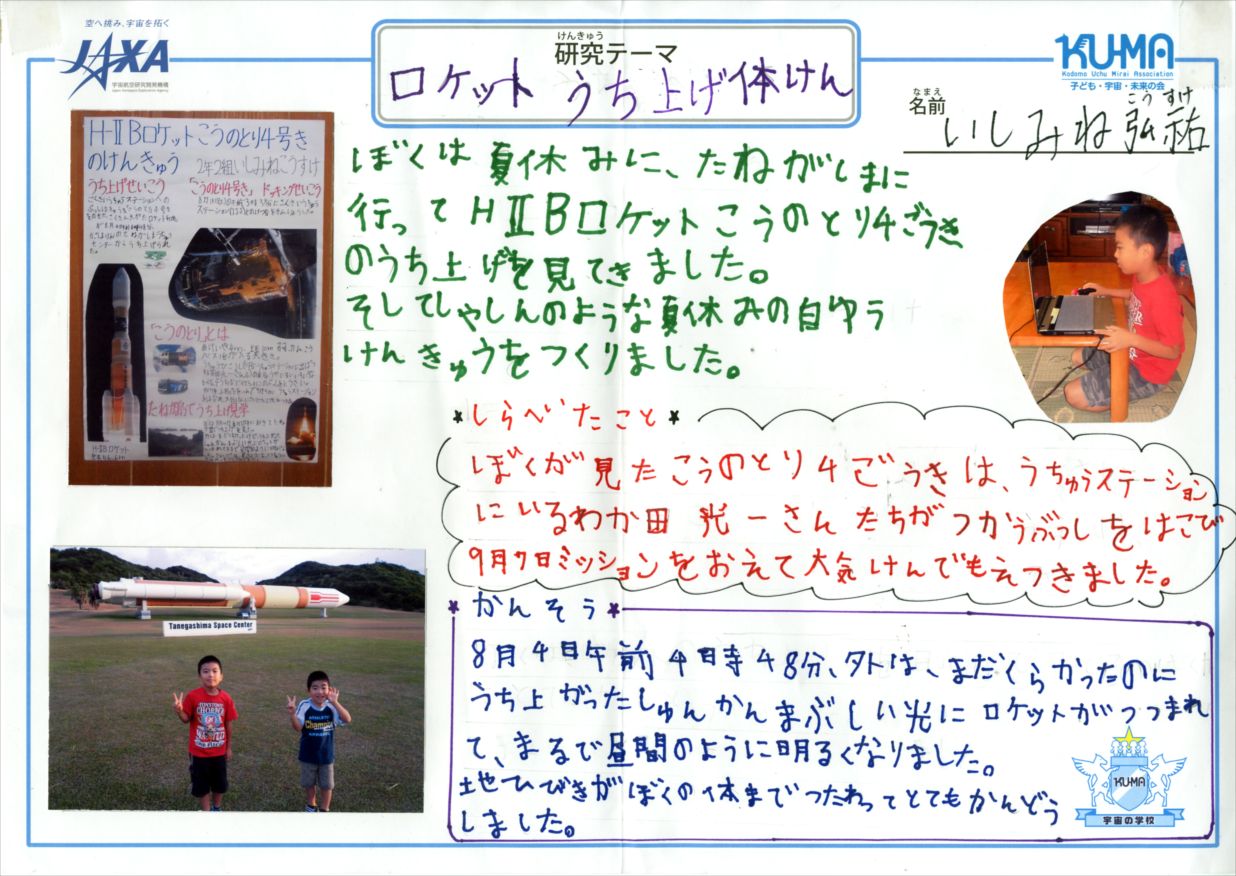 空へ挑み、宇宙を拓く
JAXA
宇宙航空研究開発機構
Japan Aerospace Exploration Agency
けんきゅう
研究テーマ
ロケット うち上げ体けん
KU-MA
Kodomo Uchu Mirai Association
子ども・宇宙・未来の会
なまえ
名前
こうすけ
いしみね弘祐
H-ⅡBロケットこうのとり4号き
のけんきゅう
2年2組いしみねこうすけ
うち上げせいこう
「こうのとり4号き」ドッキングせいこう
「こうのとり」とは
たねがしまでうち上げ見学
H-ⅡBロケット
ぼくは夏休みに、たねがしまに
行ってHⅡBロケットこうのとり4ごうき
のうち上げを見てきました。
そしてしゃしんのような夏休みの自ゆう
けんきゅうをつくりました。
*しらべたこと*
ぼくが見たこうのとり4ごうきは、うちゅうステーション
にいるわか田光一さんたちがつかうぶっしをはこび
9月7日ミッションをおえて大気けんでもえつきました。
Tanegashima Space Center
*かんそう*
8月4日午前4時48分、外は、まだくらかったのに
うち上がったしゅんかんまぶしい光にロケットがつつまれ
て、まるで昼間のように明るくなりました。
地ひびきがぼくの体までつたわってとてもかんどう
しました。
KU-MA
宇宙の学校